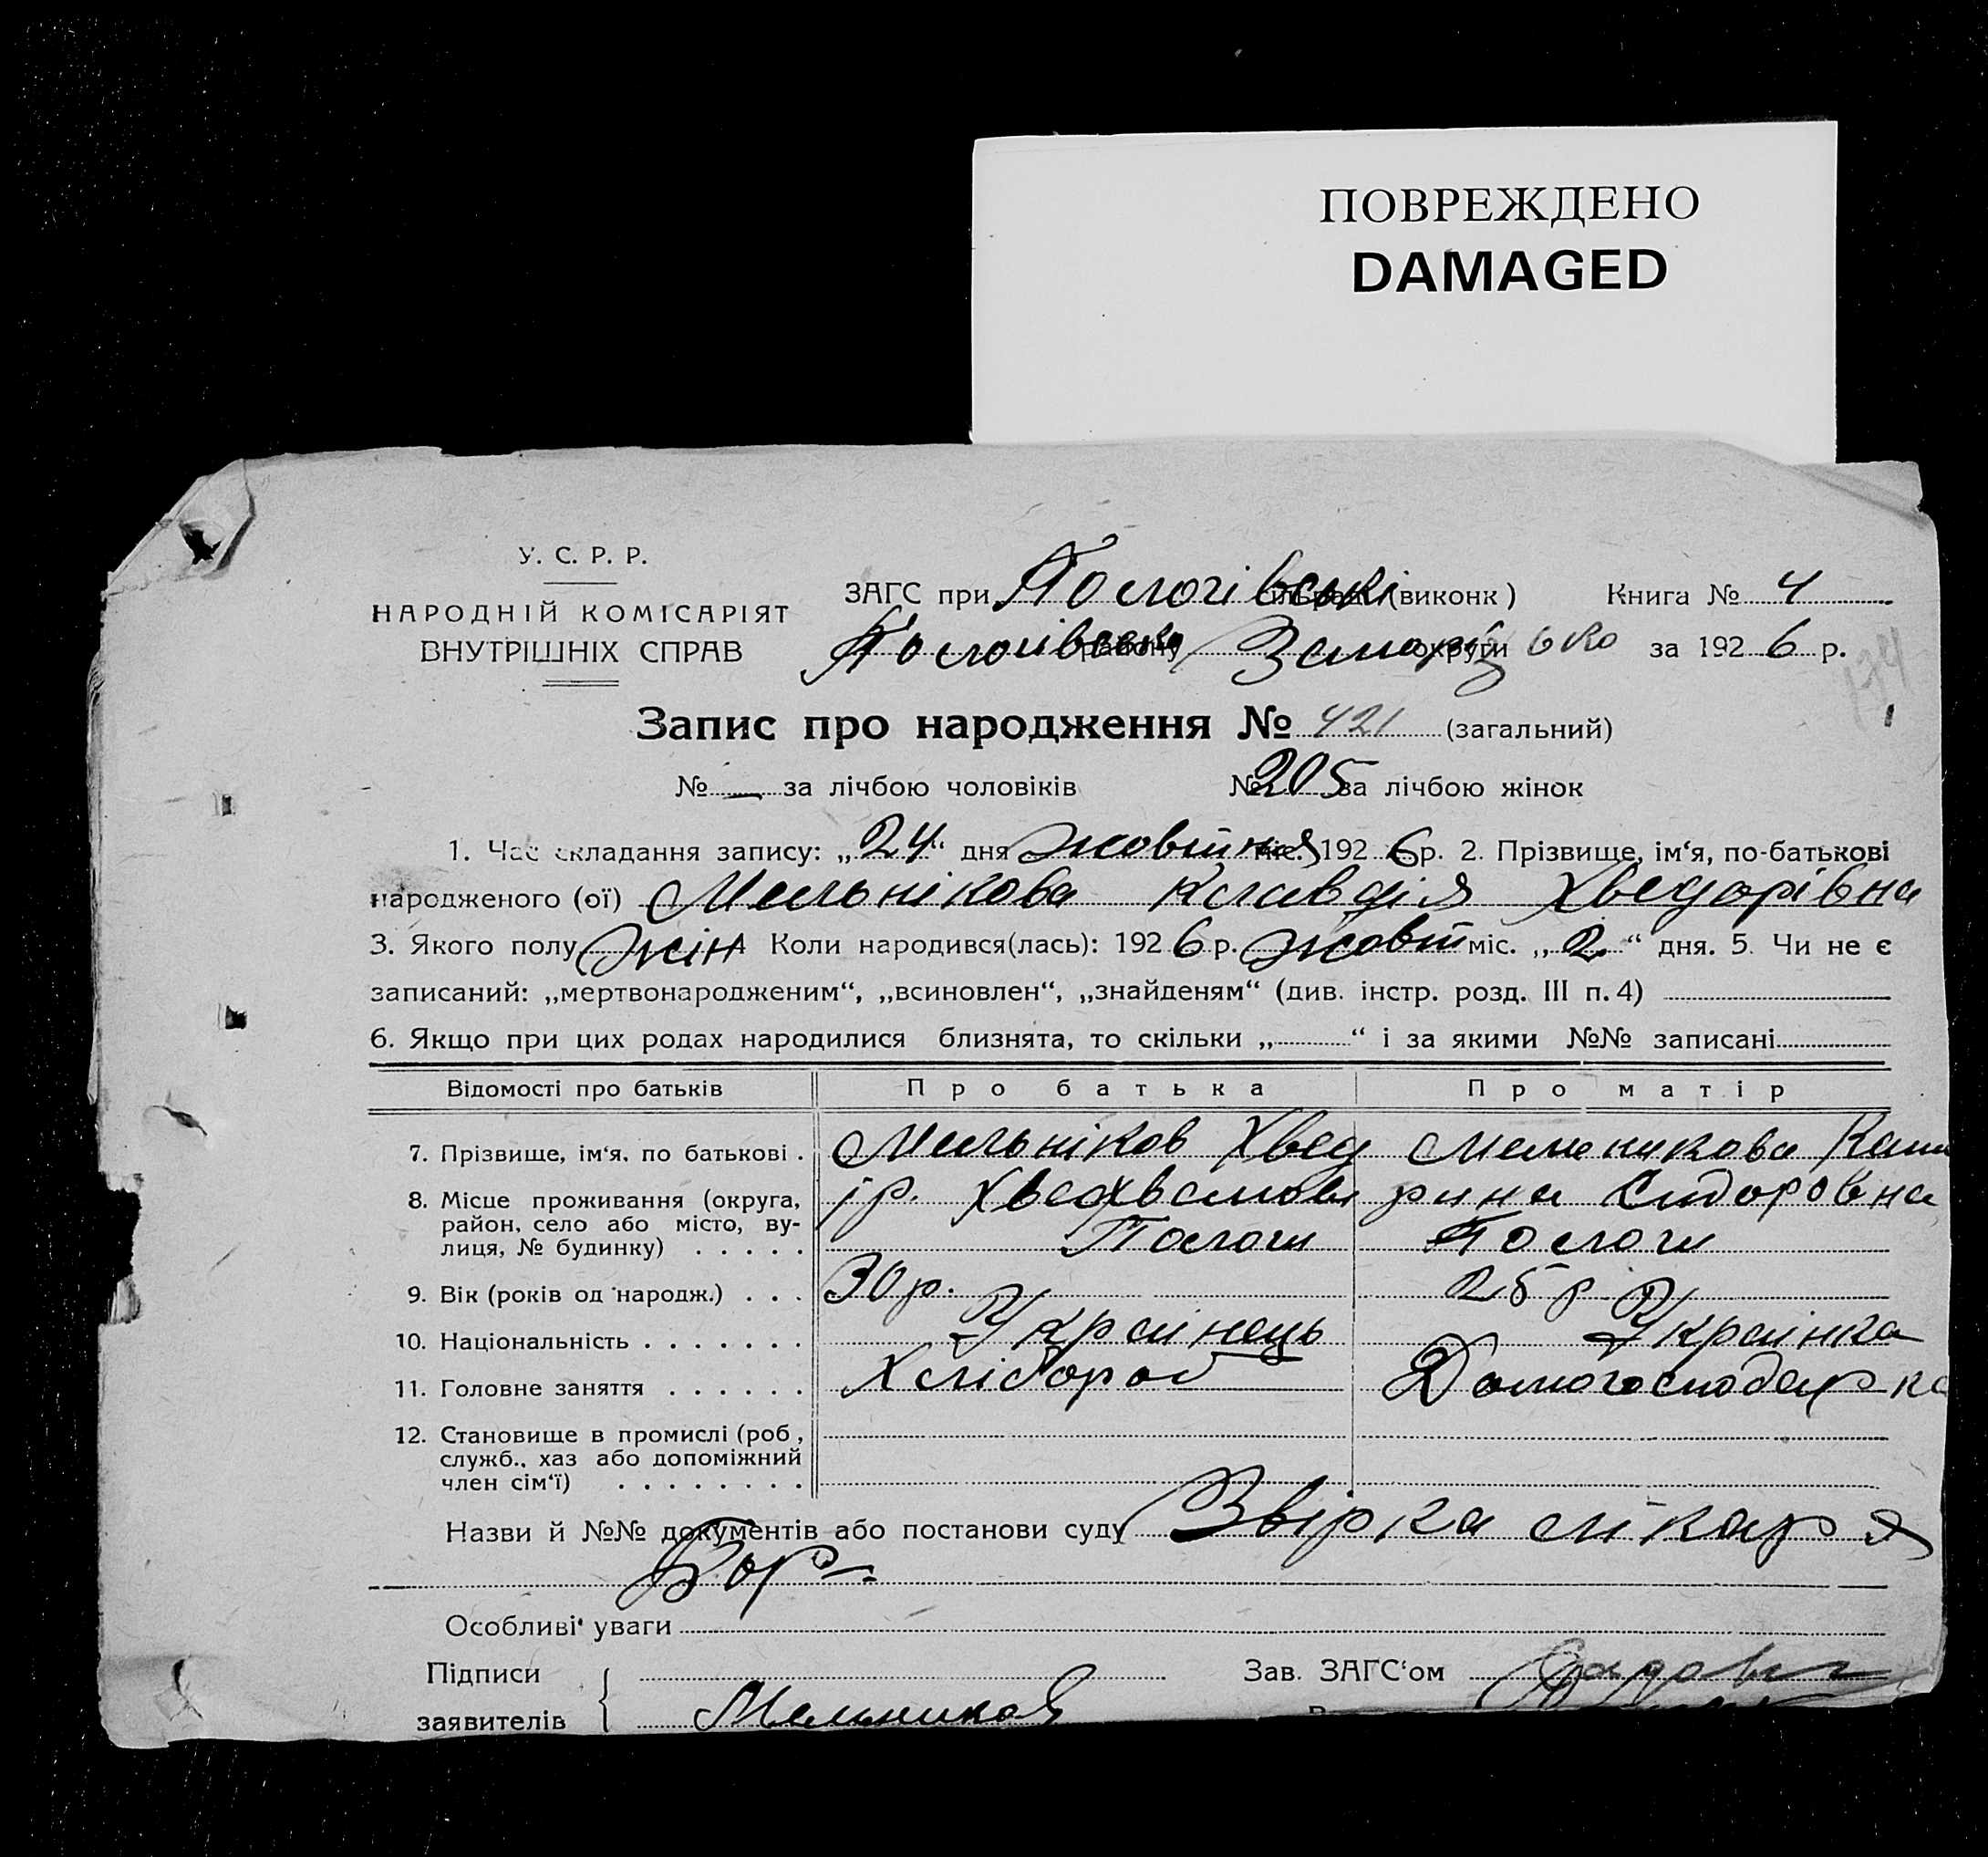 ПОВРЕЖДЕНО
DAMAGED
У. С. Р. Р.
НАРОДНІЙ КОМІСАРІЯТ
ВНУТРІШНІХ СПРАВ
ЗАГС при Пологівські сільраді (виконк) Книга № 4
Пологівсько району Запорізько округи за 1926 р.
174
Запис про народження № 421 (загальний)
№ — за лічбою чоловіків № 205 за лічбою жінок
1. Час складання запису: „24“ дня жовтня міс. 1926 р. 2. Прізвище, ім‘я, по-батькові
народженого (ої) Мельнікова Клавдія Хведорівна
3. Якого полу жін 4 Коли народився(лась): 1926 р. жовт міс. „2“ дня. 5. Чи не є
записаний: „мертвонародженим“, „всиновлен“, „знайденям“ (див. інстр. розд. III п. 4)
6. Якщо при цих родах народилися близнята, то скільки „ “ і за якими №№ записані
Відомості про батьків Про батька Про матір
7. Прізвище, ім‘я, по батькові . Мельніков Хвед Мельникова Кате
8. Місце проживання (округа, ір. рина Сидоровна
район, село або місто, ву-
лиця, № будинку) . . . . . Пологи Пологи
9. Вік (років од народж.) . . . 30 р. 25 р.
10. Національність . . . . . . . Українець Українка
11. Головне заняття . . . . . . Хлібороб Домогосподарка
12. Становище в промислі (роб.,
служб., хаз або допоміжний
член сім‘ї) . . . . . . . .
Назви й №№ документів або постанови суду Звірка лікаря
Особливі уваги
Підписи Зав. ЗАГС‘ом
заявителів Мельников